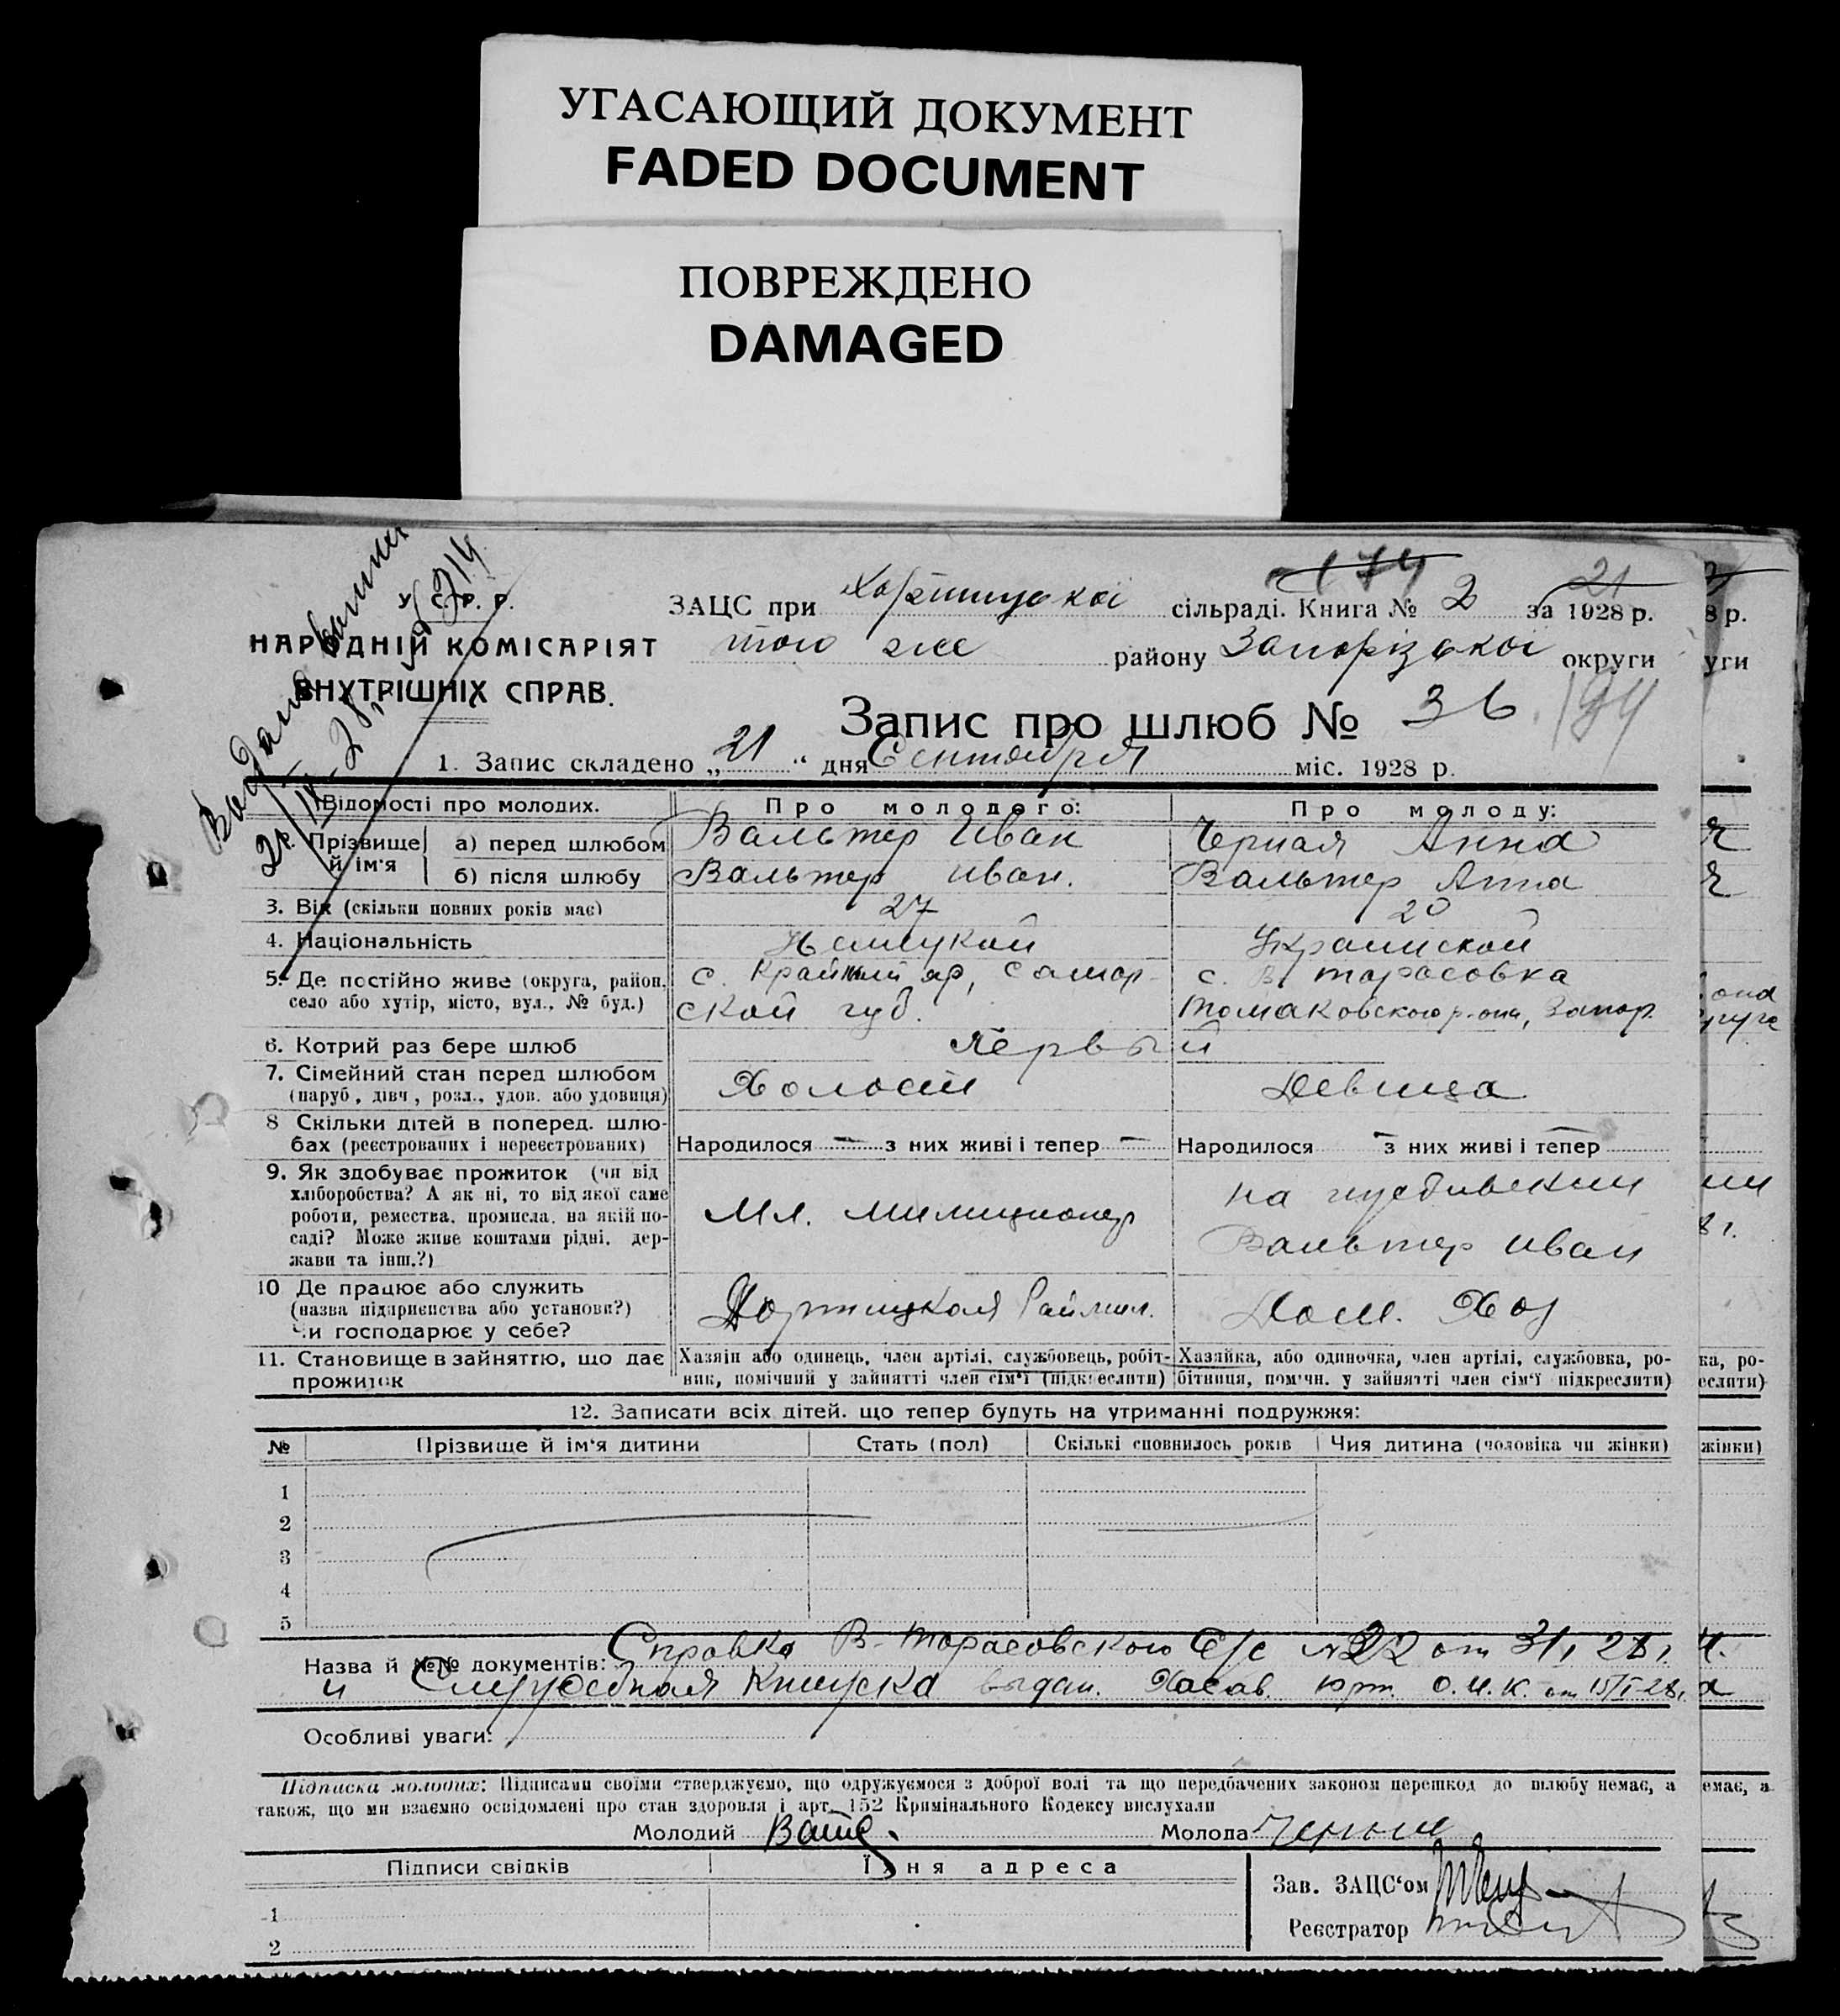 УГАСАЮЩИЙ ДОКУМЕНТ
FADED DOCUMENT
ПОВРЕЖДЕНО
DAMAGED
174 21
У. С. Р. Р.
НАРОДНІЙ КОМІСАРІЯТ
ВНУТРІШНІХ СПРАВ.
ЗАЦС при Хортицькоі сільраді. Книга № 2 за 1928 р.
того же району Запорізькоі округи
Запис про шлюб № 36
1. Запис складено „21“ дня Сентября міс. 1928 р.
Відомості про молодих. Про молодого: Про молоду:
2. Прізвище й ім'я а) перед шлюбом Вальтер Иван Черная Анна
б) після шлюбу Вальтер Иван. Вальтер Анна
3. Вік (скільки повних років має) 27 20
4. Національність Немецкой Украинской
5. Де постійно живе (округа, район, с. Крайний яр, Самар- с. В тарасовка
село або хутір, місто, вул., № буд.) ской губ. Томаковского р-она, Запор.
6. Котрий раз бере шлюб Первый
7. Сімейний стан перед шлюбом Холост Девица
(паруб, дівч, розл., удов. або удовиця)
8 Скільки дітей в поперед. шлю-
бах (реєстрованих і нереєстрованих) Народилося — з них живі і тепер — Народилося — з них живі і тепер —
9. Як здобуває прожиток (чи від
хліборобства? А як ні, то від якої саме
роботи, ремества, промисла, на якій по-
саді? Може живе коштами рідні, дер-
жави та інш.?)
Мл. милиционер
на иждивении
Вальтер Иван
10 Де працює або служить
(назва підприємства або установи?)
Чи господарює у себе?
Хортицкая Раймил. Дом. Хоз
11. Становище в зайняттю, що дає
прожиток
Хазяін або одинець, член артілі, службовець, робіт-
ник, помічний у зайнятті член сім'ї (підкреслити)
Хазяйка, або одиночка, член артілі, службовка, ро-
бітниця, пом'чн. у зайнятті член сім'ї підкреслити)
12. Записати всіх дітей. що тепер будуть на утриманні подружжя:
№ Прізвище й ім'я дитини Стать (пол) Скількі сповнилось років Чия дитина (чоловіка чи жінки)
1
2
3
4
5
Назва й №№ документів: Справка В-Тарасовского С/с № 22 от 31/I 28 г.
и Служебная Книжка выдан. Хасав. юрт. О.И.К. от 15/I-28 г.
Особливі уваги:
Підписка молодих: Підписами своїми стверджуємо, що одружуємося з доброї волі та що передбачених законом перешкод до шлюбу немає, а
також, що ми взаємно освідомлені про стан здоровля і арт. 152 Кримінального Кодексу вислухали
Молодий Молода
Підписи свідків Їхня адреса
Зав. ЗАЦС'ом
Реєстратор
1
2
8 р.
уги
жінки)
ка, ро-
еслити)
емає, а